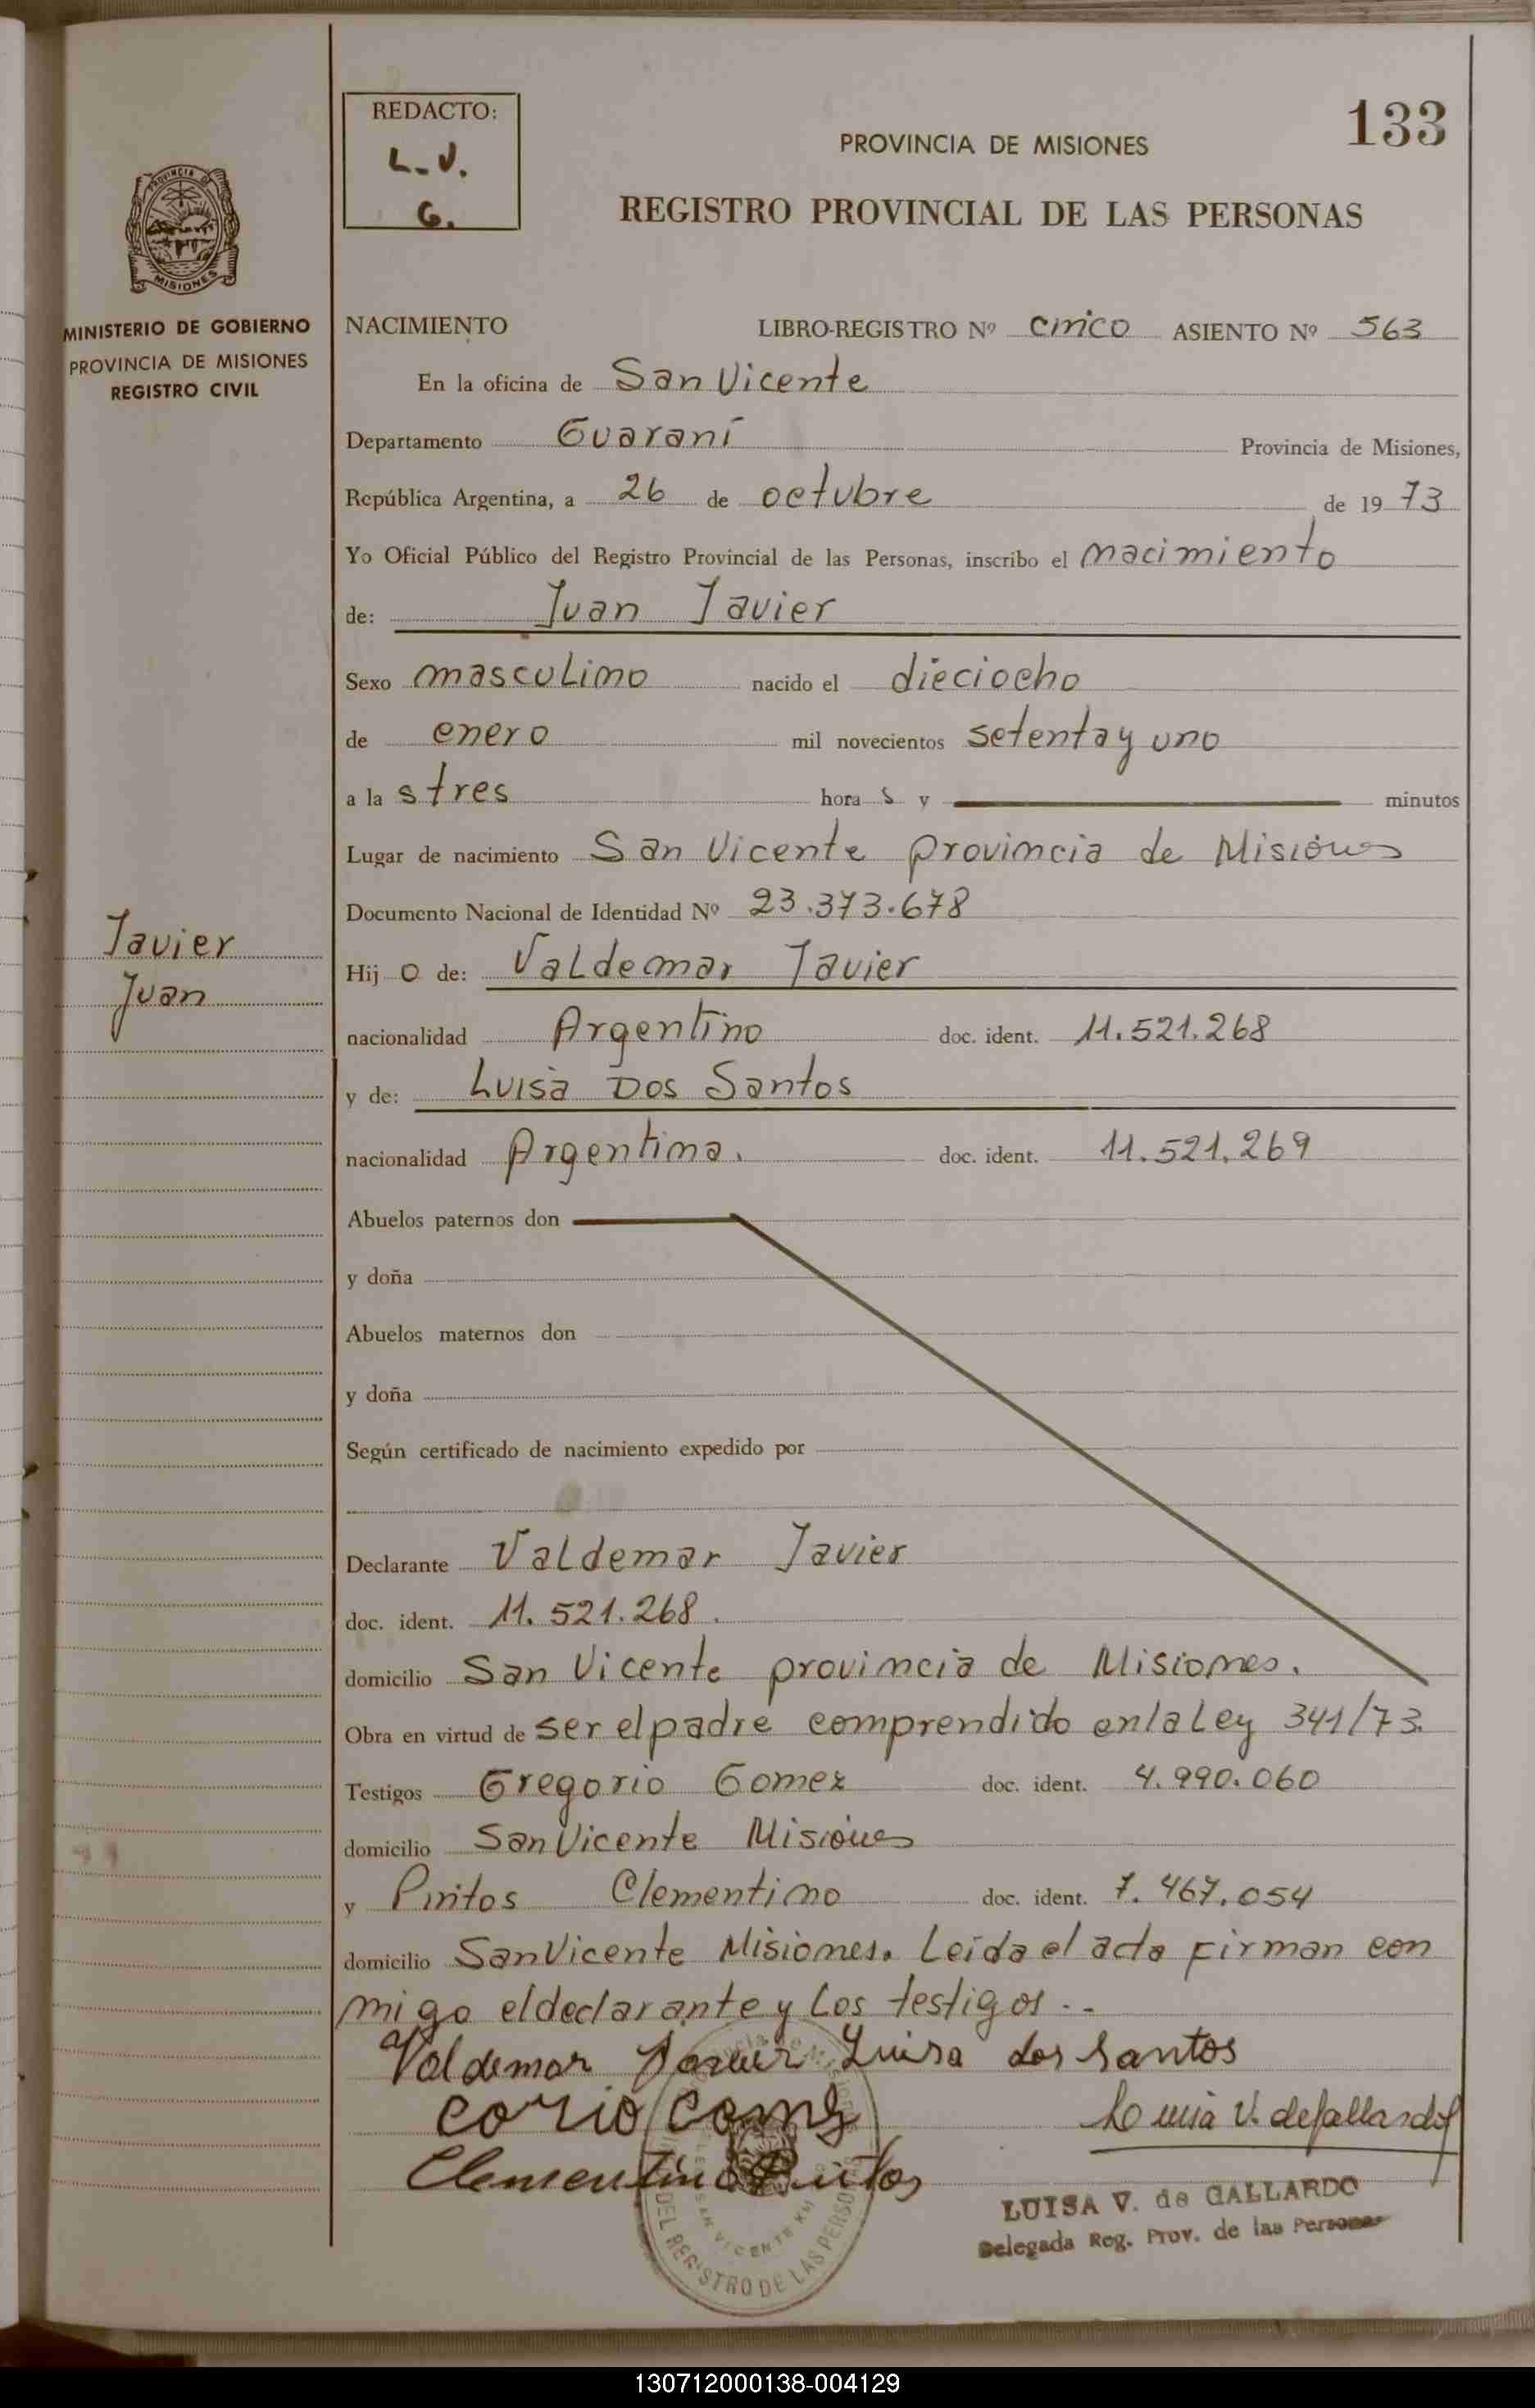 133
REDACTO:
L.V.
G.
PROVINCIA DE MISIONES
REGISTRO PROVINCIAL DE LAS PERSONAS
PROVINCIA DE
MISIONES
MINISTERIO DE GOBIERNO
PROVINCIA DE MISIONES
REGISTRO CIVIL
NACIMIENTO LIBRO-REGISTRO Nº cinco ASIENTO Nº 563
En la oficina de San Vicente
Departamento Guaraní Provincia de Misiones,
República Argentina, a 26 de octubre de 1973
Yo Oficial Público del Registro Provincial de las Personas, inscribo el nacimiento
de: Juan Javier
Sexo masculino nacido el dieciocho
de enero mil novecientos setenta y uno
a la s tres hora s y minutos
Lugar de nacimiento San Vicente provincia de Misiones
Documento Nacional de Identidad Nº 23.373.678
Javier
Juan
Hijo de: Valdemar Javier
nacionalidad Argentino doc. ident. 11.521.268
y de: Luisa Dos Santos
nacionalidad Argentina. doc. ident. 11.521.269
Abuelos paternos don
y doña
Abuelos maternos don
y doña
Según certificado de nacimiento expedido por
Declarante Valdemar Javier
doc. ident. 11.521.268.
domicilio San Vicente provincia de Misiones.
Obra en virtud de ser el padre comprendido en la Ley 341/73.
Testigos Gregorio Gomez doc. ident. 4.990.060
domicilio San Vicente Misiones
y Pintos Clementino doc. ident. 7.467.054
domicilio San Vicente Misiones. Leída el acta firman con
migo el declarante y los testigos..
Valdemar Javier Luisa dos Santos
Luisa V. de Gallardo
Clementino Pintos
LUISA V. de GALLARDO
Delegada Reg. Prov. de las Personas
SAN VICENTE
DEL REGISTRO DE LAS PERSONAS
130712000138-004129